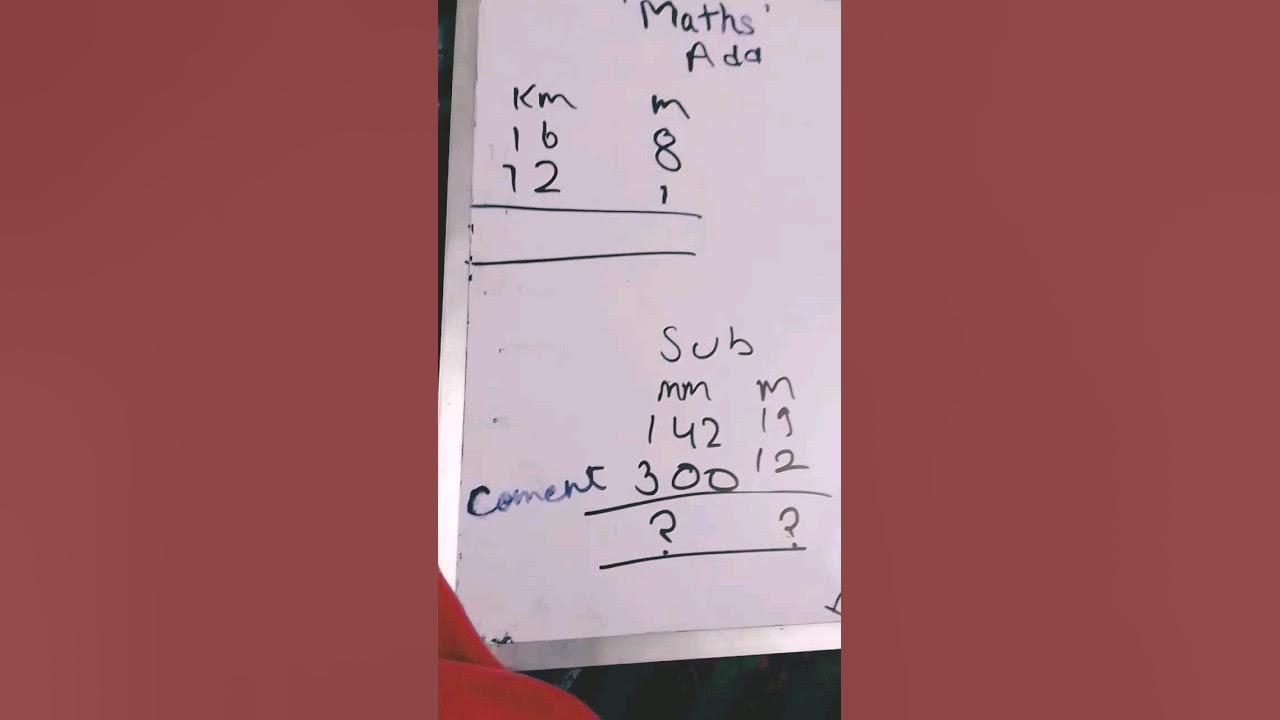 'Maths'
Add
Km m
16 8
12 1
Sub
mm m
142 19
Coment 300 12
? ?